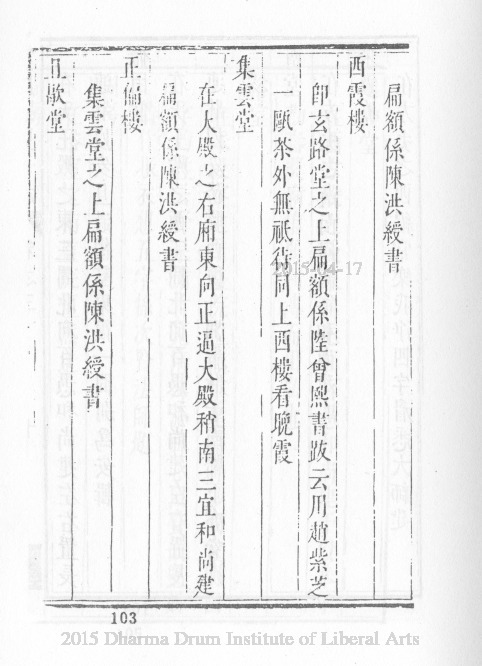 扁額係陳洪綬書
西霞樓
卽玄路堂之上扁額係陸曾熙書跋云用趙紫芝
一甌茶外無祗待同上西樓看晚霞
集雲堂
在大殿之右廂東向正逼大殿稍南三宜和尚建
扁額係陳洪綬書
正偏樓
集雲堂之上扁額係陳洪綬書
且歇堂
103
2015-04-17
2015 Dharma Drum Institute of Liberal Arts